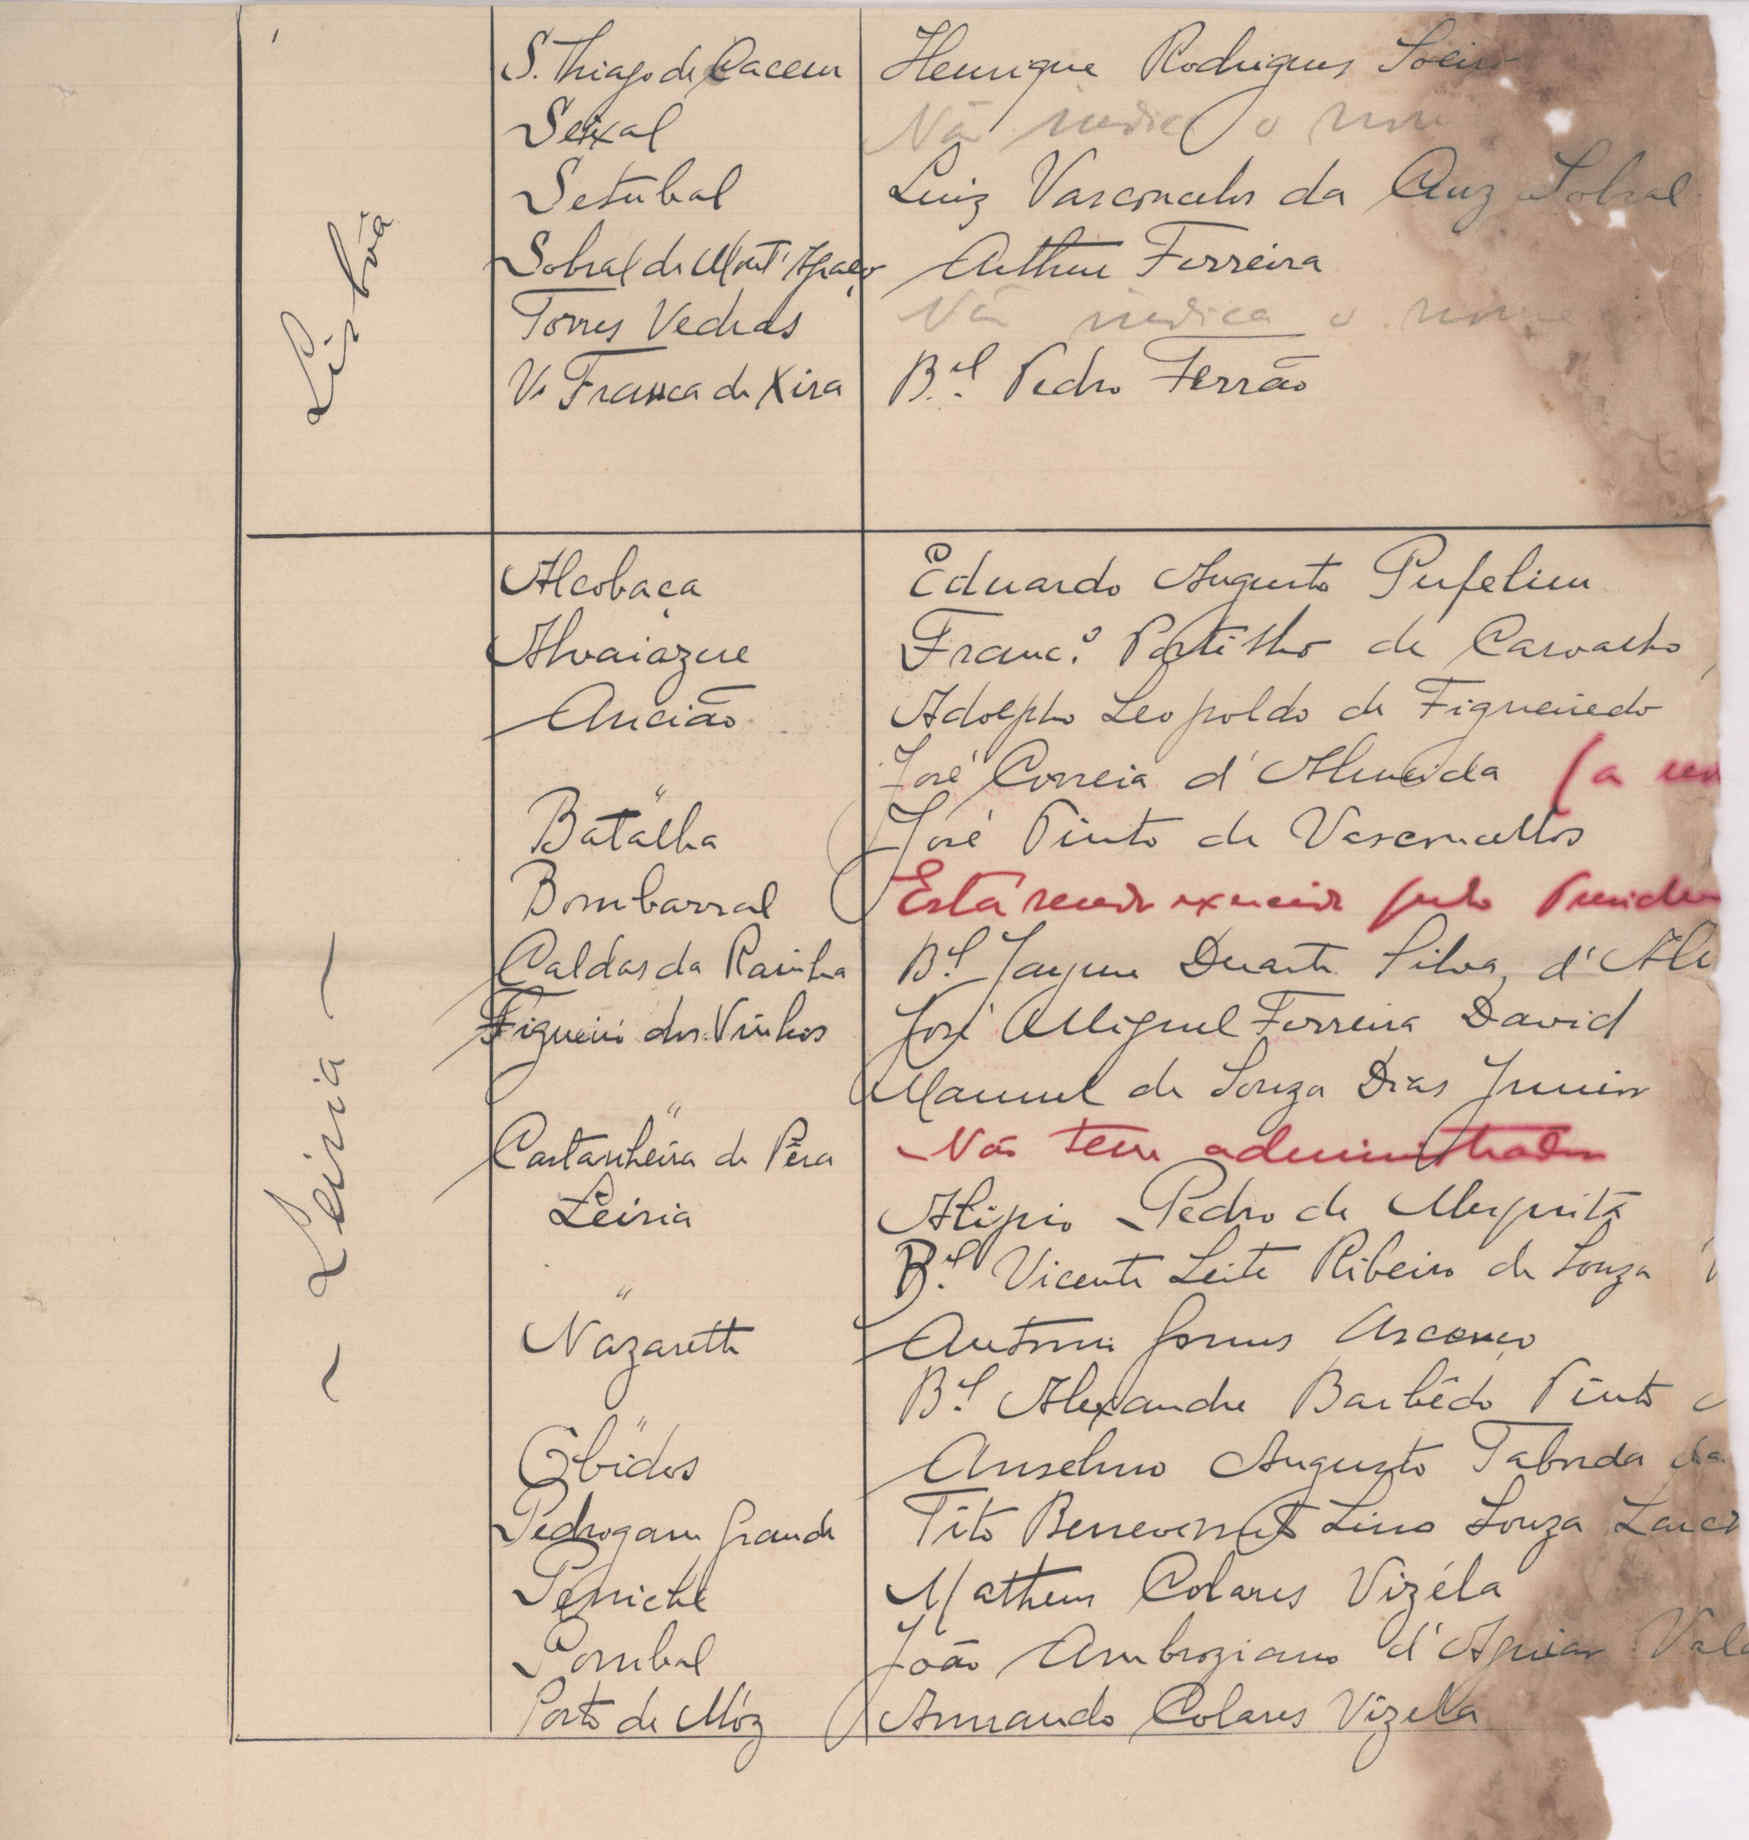 Lisbôa
S. Thiago de Cacem Henrique Rodrigues Soeiro
Seixal Não indica o nome
Setubal Luiz Vasconcelos da Cruz Sobral
Sobral de Mont'Agraço Arthur Ferreira
Torres Vedras Não indica o nome
V. Franca de Xira B.el Pedro Ferrão
- Leiria -
Alcobaça Eduardo Augusto
Alvaiazere Franc.º Portilho de Carvalho
Ancião Adolpho Leopoldo de Figueiredo
" José Correia d'Almeida (a
Batalha José Pinto de Vasconcellos
Bombarral Está sendo exercido pelo Presiden
Caldas da Rainha B.el Jayme Duarte Silva, d'Al
Figueiró dos Vinhos José Miguel Ferreira David
" Manuel de Souza Dias Junior
Castanheira de Pêra Não tem administrador
Leiria Alipio Pedro de Mesquita
" B.el Vicente Leite Ribeiro de Souza
Nazareth Antonio Gomes Ascenço
" B.el Alexandre Barbêdo Pinto
Obidos Anselmo Augusto Taborda da
Pedrogam Grande Tito Benevenuto Lino Souza
Peniche Matheus Colares Vizéla
Pombal João Ambroziano d'Aguiar
Porto de Móz Armando Colares Vizella